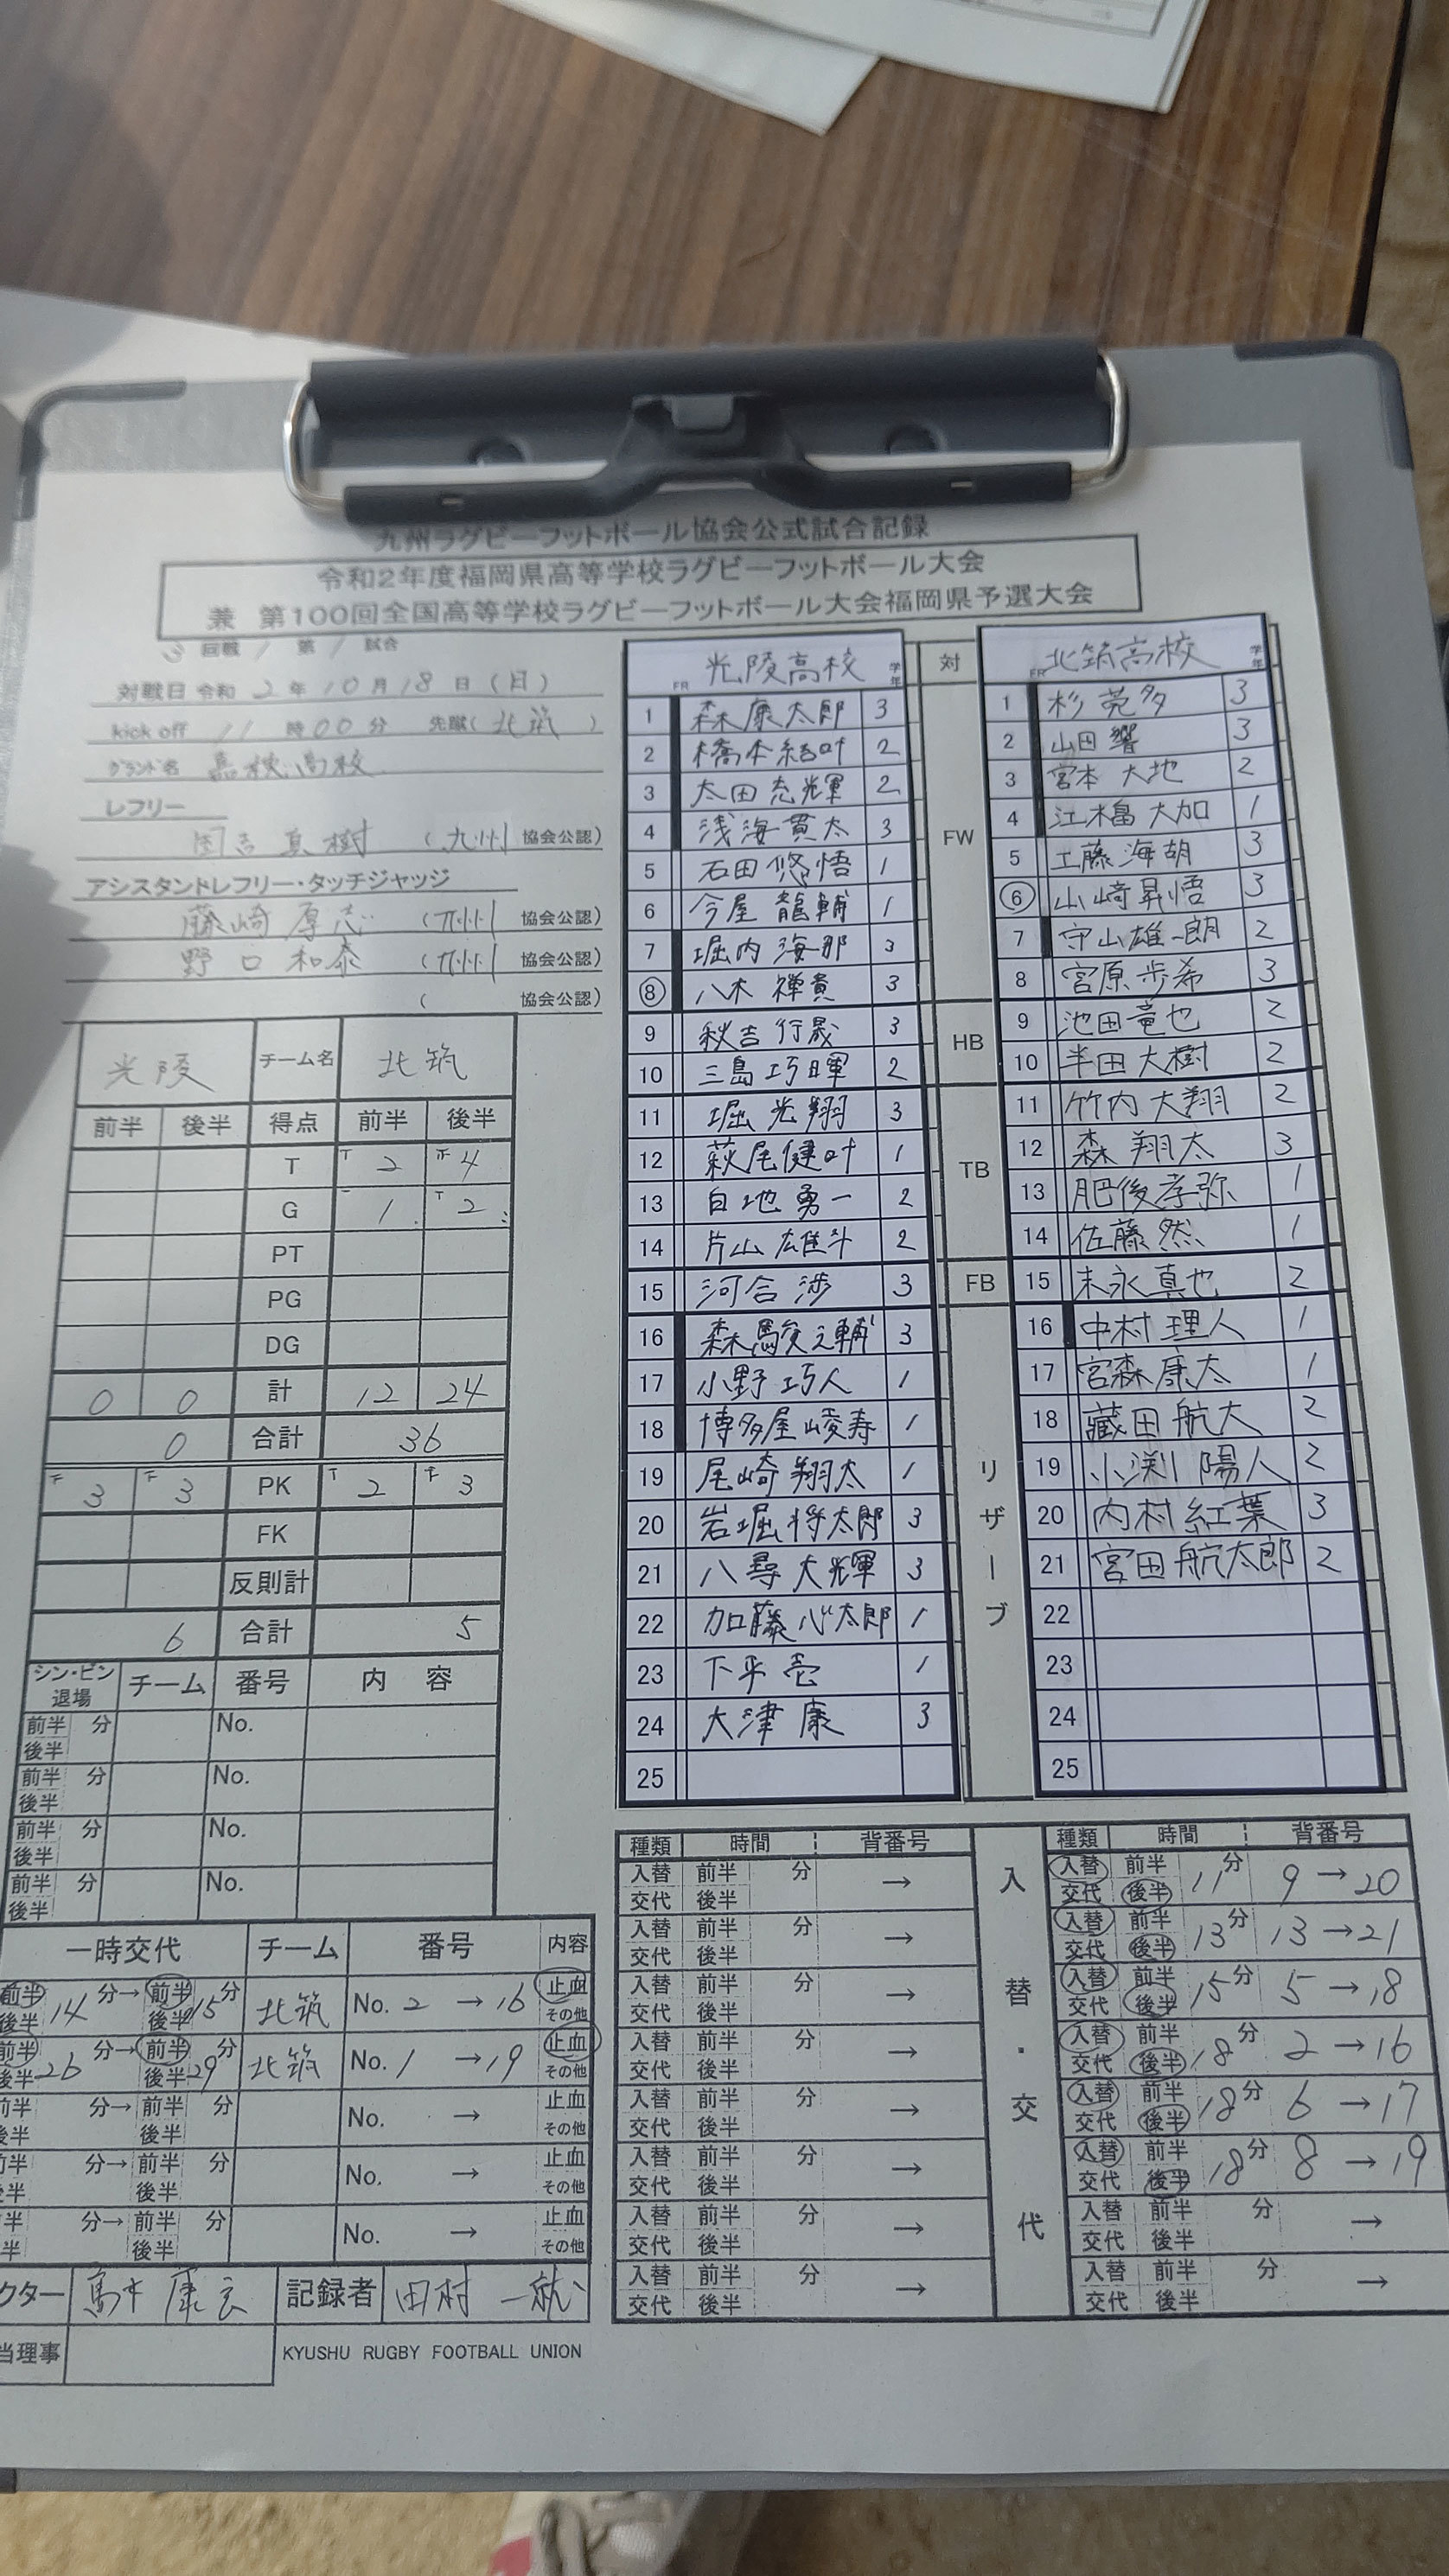 九州ラグビーフットボール協会公式試合記録
令和2年度福岡県高等学校ラグビーフットボール大会
兼 第100回全国高等学校ラグビーフットボール大会福岡県予選大会
3 回戦 / 第 / 試合
対戦日 令和 2 年 10 月 18 日 (日)
kick off 11 時 00 分 先蹴 (北筑)
グランド名 嘉穂高校
レフリー
真樹 (九州 協会公認)
アシスタントレフリー・タッチジャッジ
藤崎 厚志 (九州 協会公認)
野口 和泰 (九州 協会公認)
( 協会公認)
光陵 チーム名 北筑
前半 後半 得点 前半 後半
T 2 4
G 1 2
PT
PG
DG
0 0 計 12 24
0 合計 36
3 3 PK 2 3
FK
反則計
6 合計 5
シン・ビン 退場 チーム 番号 内 容
前半 後半 分 No.
前半 後半 分 No.
前半 後半 分 No.
前半 後半 分 No.
一時交代 チーム 番号 内容
前半 後半 14 分→ 前半 後半 15 分 北筑 No. 2 → 16 止血 その他
前半 後半 26 分→ 前半 後半 29 分 北筑 No. 1 → 19 止血 その他
前半 後半 分→ 前半 後半 分 No. → 止血 その他
前半 後半 分→ 前半 後半 分 No. → 止血 その他
半 半 分→ 前半 後半 分 No. → 止血 その他
クター 康 記録者 田村 一就
当理事
KYUSHU RUGBY FOOTBALL UNION
FR 光陵高校 学年
1 森 康太郎 3
2 橋本 結叶 2
3 太田 志輝 2
4 浅海 貫太 3
5 石田 悠悟 1
6 今屋 龍輔 1
7 堀内 海那 3
8 八木 禅貴 3
9 秋吉 行晟 3
10 三島 巧暉 2
11 堀 光翔 3
12 萩尾 健叶 1
13 白地 勇一 2
14 片山 雄斗 2
15 河合 渉 3
16 森 駿之輔 3
17 小野 巧人 1
18 博多屋 崚寿 1
19 尾崎 翔太 1
20 岩堀 将太郎 3
21 八尋 大輝 3
22 加藤 心太郎 1
23 下平 壱 1
24 大津 康 3
25
対
FW
HB
TB
FB
リザーブ
FR 北筑高校 学年
1 杉 莞多 3
2 山田 響 3
3 宮本 大地 2
4 江木畠 大加 1
5 工藤 海胡 3
6 山崎 昇悟 3
7 守山 雄一朗 2
8 宮原 歩希 3
9 池田 竜也 2
10 半田 大樹 2
11 竹内 大翔 2
12 森 翔太 3
13 肥後 孝弥 1
14 佐藤 然 1
15 末永 真也 2
16 中村 理人 1
17 宮森 康太 1
18 藏田 航大 2
19 小渕 陽人 2
20 内村 紅葉 3
21 宮田 航太郎 2
22
23
24
25
種類 時間 背番号
入替 交代 前半 後半 分 →
入替 交代 前半 後半 分 →
入替 交代 前半 後半 分 →
入替 交代 前半 後半 分 →
入替 交代 前半 後半 分 →
入替 交代 前半 後半 分 →
入替 交代 前半 後半 分 →
入替 交代 前半 後半 分 →
入替・交代
種類 時間 背番号
入替 交代 前半 後半 11 分 9 → 20
入替 交代 前半 後半 13 分 13 → 21
入替 交代 前半 後半 15 分 5 → 18
入替 交代 前半 後半 18 分 2 → 16
入替 交代 前半 後半 18 分 6 → 17
入替 交代 前半 後半 18 分 8 → 19
入替 交代 前半 後半 分 →
入替 交代 前半 後半 分 →